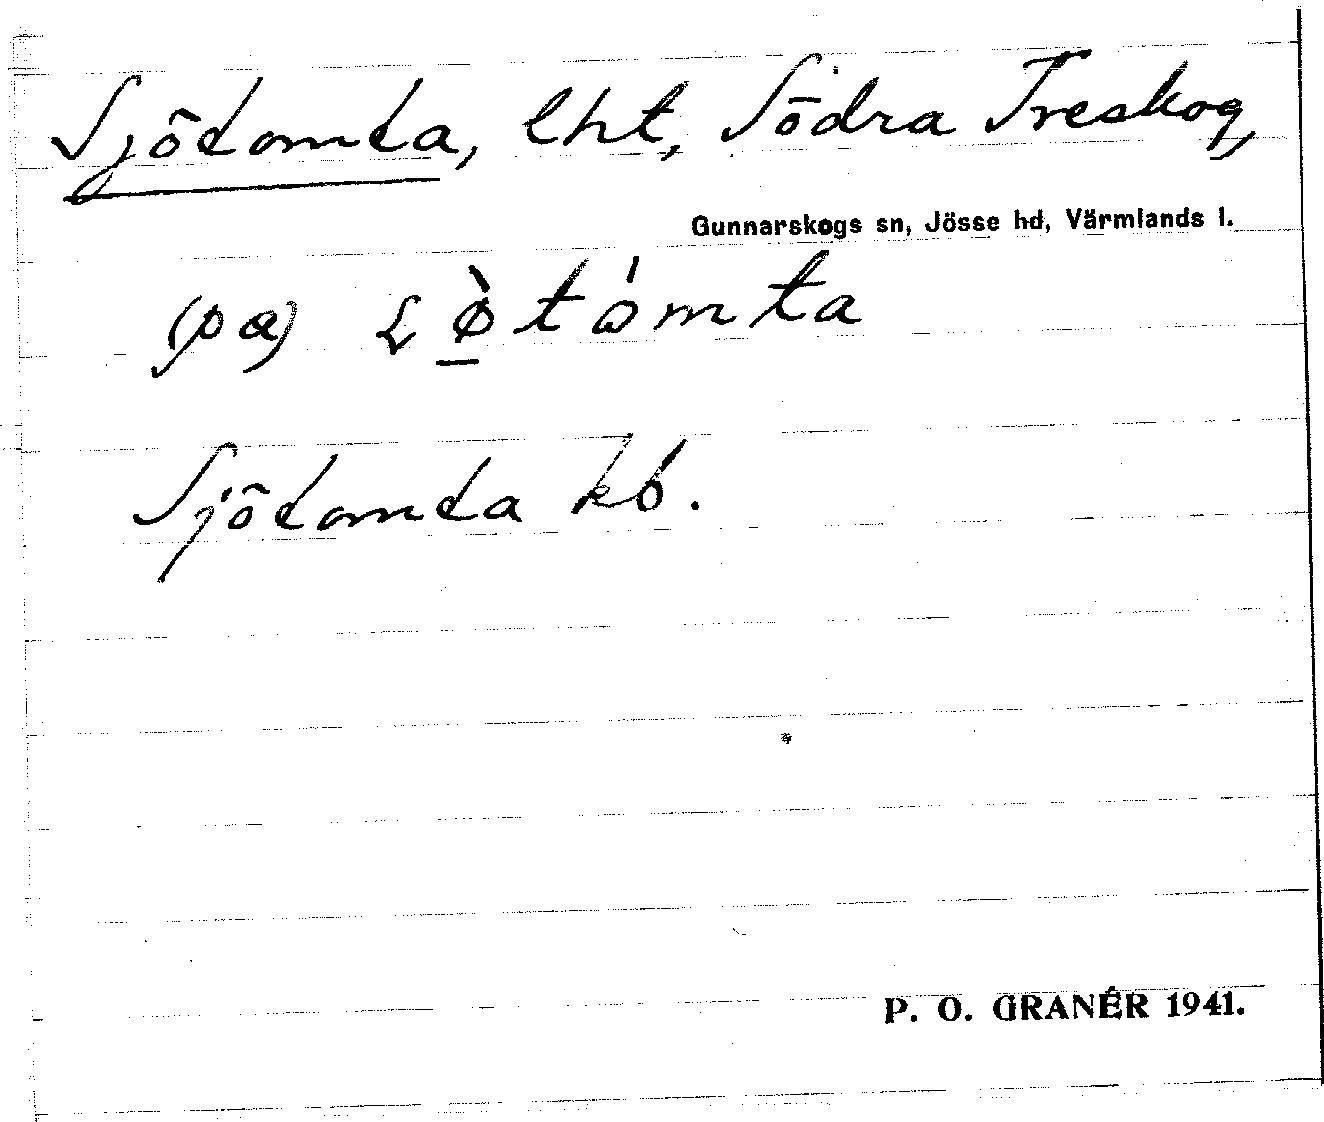 Sjötomta, lht, Södra Treskog,
Gunnarskogs sn, Jösse hd, Värmlands l.
(pa) tomta
Sjötomta kb.
P. O. GRANÉR 1941.